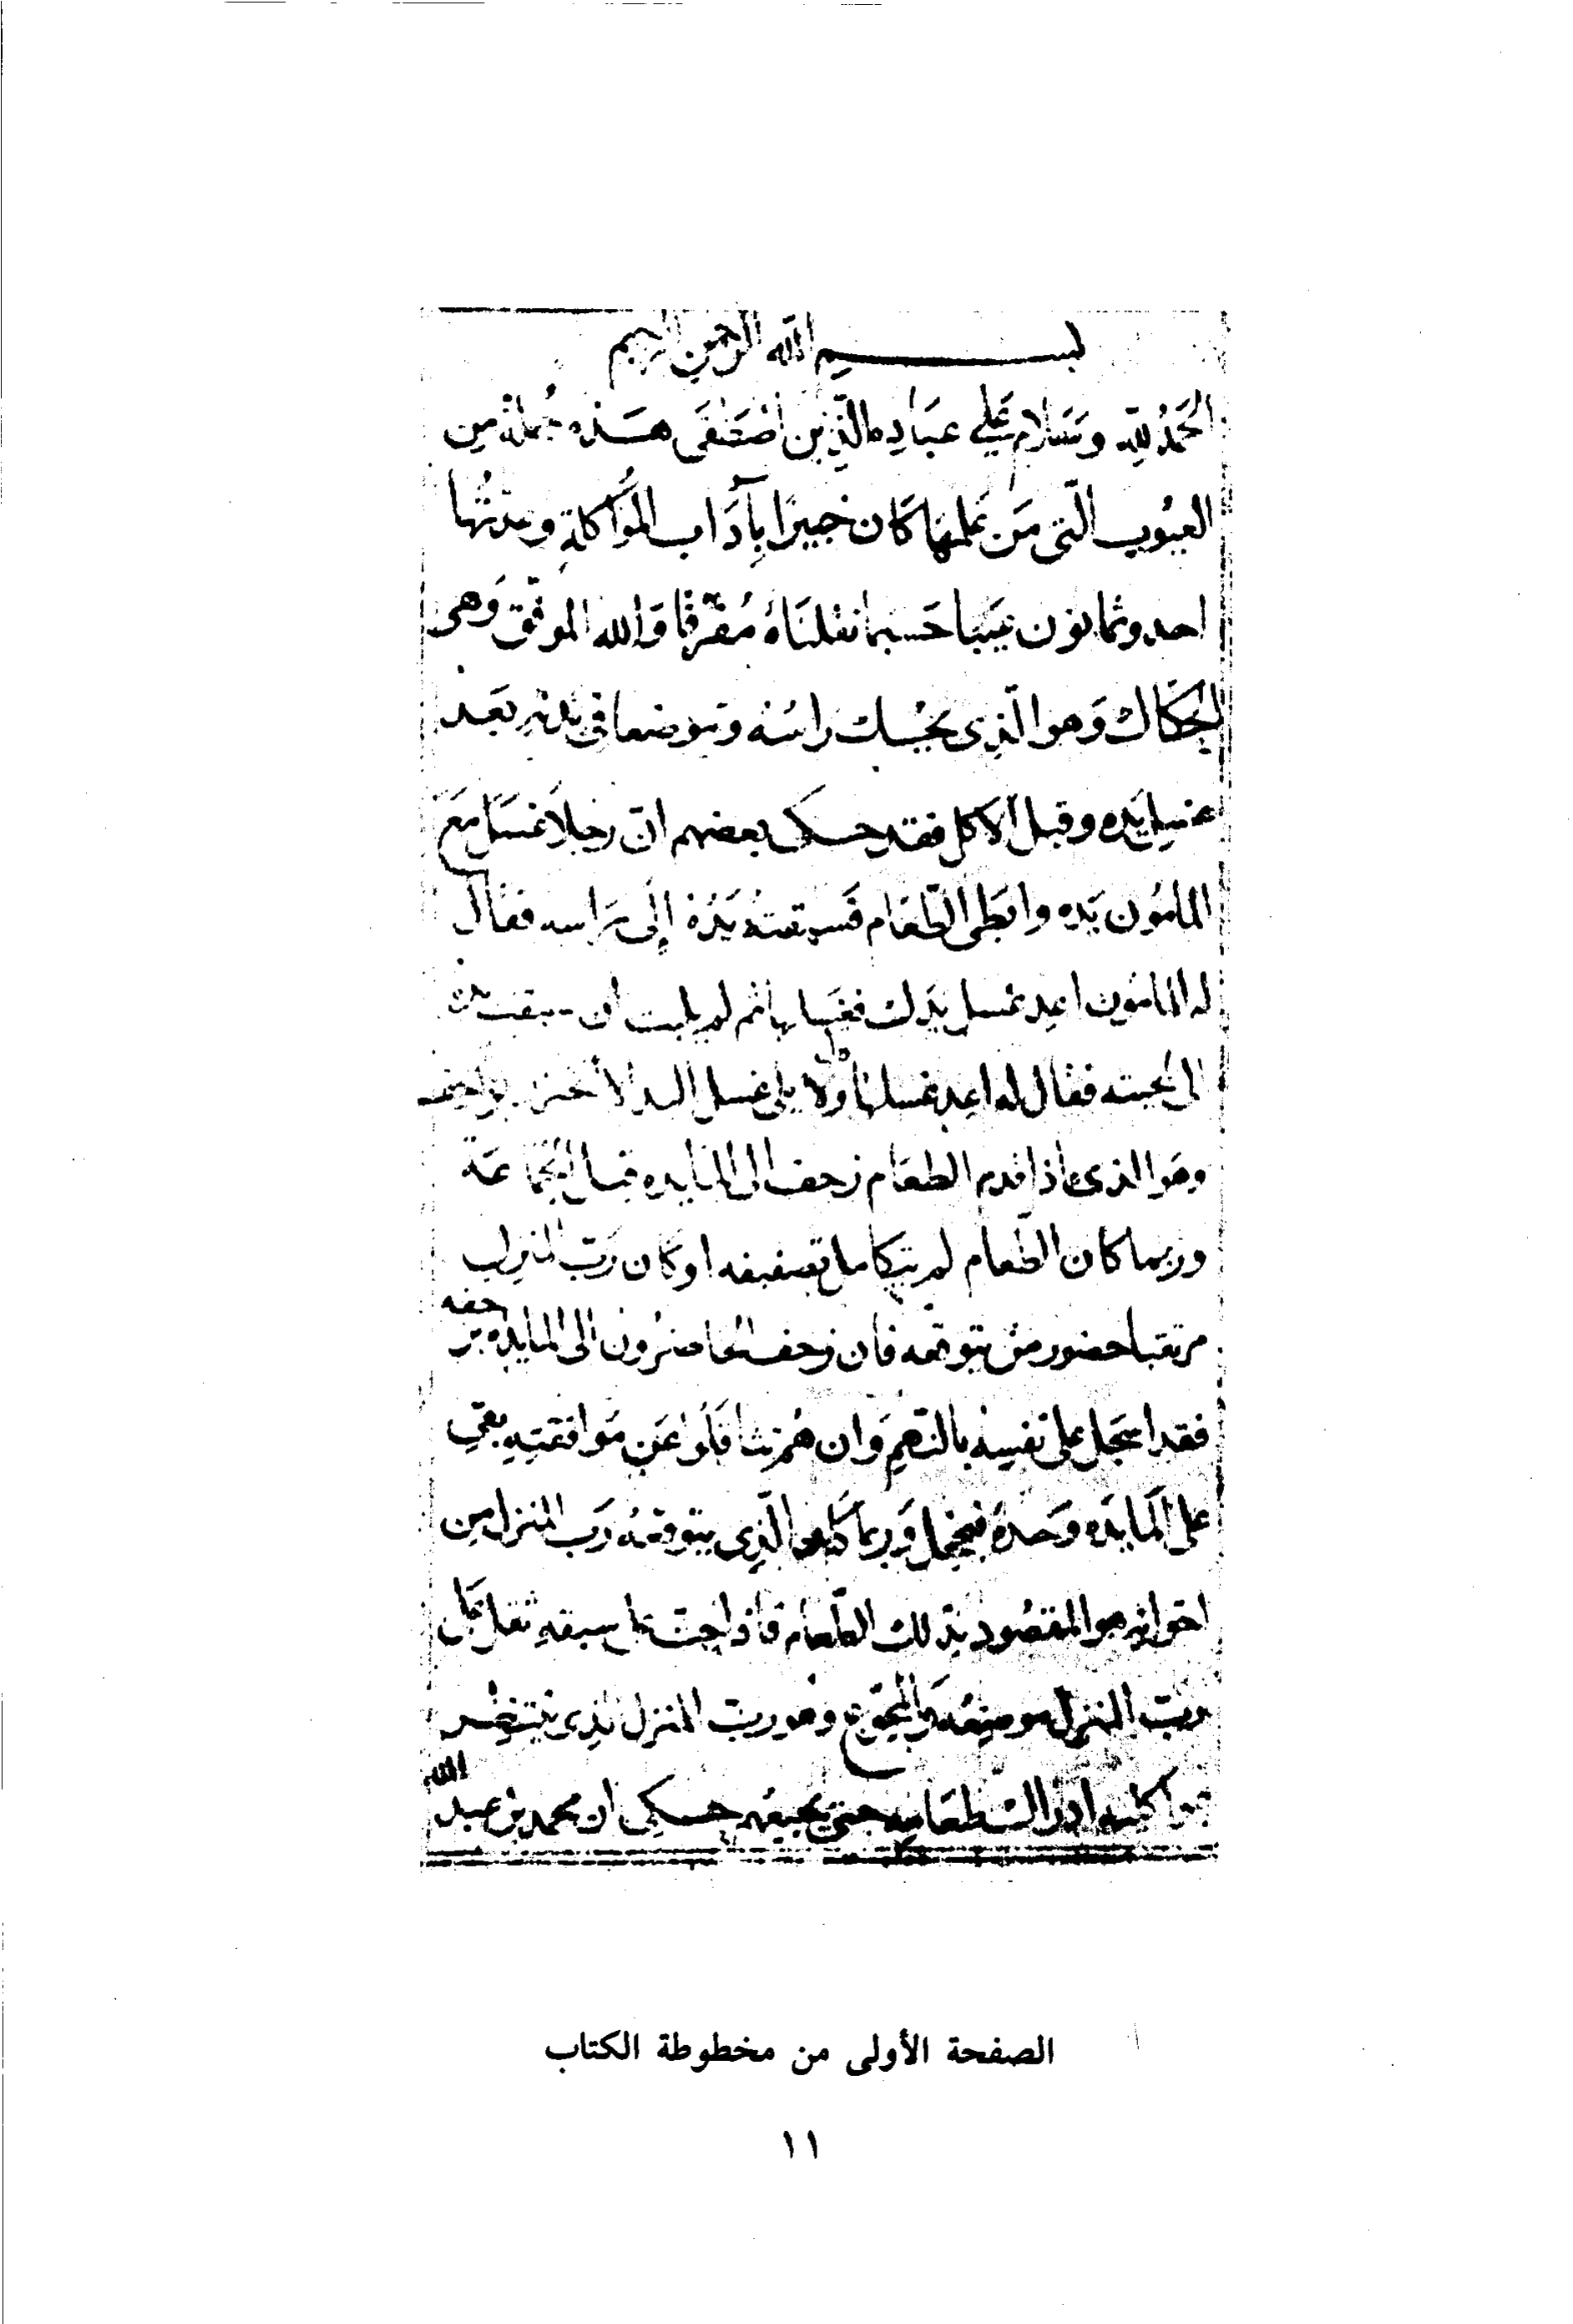 بسم الله الرحمن الرحيم
الحَمْدُ لِلّهِ وسَلام عَلى عبَادِه الّذين اصْطَفَى هَذه جُملة مِن
العيُوب الّتى مَن عَلمهَا كَان خبيرًا بآدَاب المُؤَاكلة وعدتُها
احد وثمانون عَيبا حَسبما نقلنَاهُ مُفرّقًا وَالله الموفّق وَهى
الحكّاك وَهو الّذِى يحُك رَاسَهُ ومَوضعا فى بَدنه بَعد
غسل يَده وقبل الاكل فقد حكى بعضهم انّ رجلاً غسَل مَعَ
المامُون يَده وابطى الطّعَام فَسبقته يَدُهُ إلَى رَاسه فقال
له المامُون اعِد غسل يَدك فغسلها ثم لم يلبث ان سبقت يده
الى لحيته فقال له اعِد غسلها وَلا يلى غسل اليد الا الخبز
وهَوا الذى اذا قدم الطعَام زحف الى المايده قبل الجمَاعَة
وربما كان الطّعام لم يتكامل تصفيفه او كان رَبّ المنزل
مرتقبا حضور مَن يتوقعه فان زحف الحاضرُون الى المايده بزحفه
فقد اسجَل على نفسِه بالنهمِ وَان هُم تثاقَلُوا عَن مَوافقتِهِ بقى
على المَايدَه وَحدهُ فيخجل وَربما كان الّذِى يتوقعهُ رَب المنزل مِن
اخوانه هو المقصُود بذلك الطّعام فاذا سبقهِ ثقل عَلى
رَبّ المنزل موضِعُه وَالمجَوّع وهو ربّ المنزل الذِى يَنتظر
ادراك طعَامه حتى يجيعهم حكى ان محمد بن عبد الله
الصفحة الأولى من مخطوطة الكتاب
١١